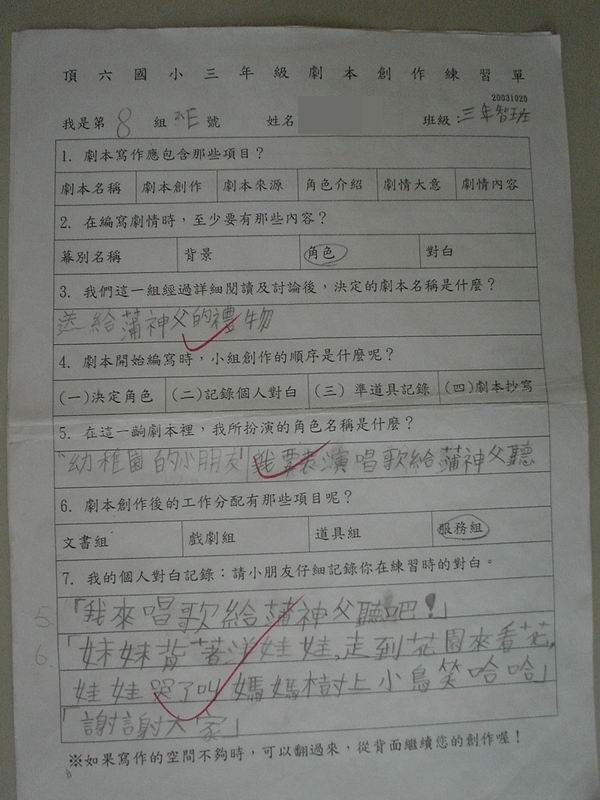 頂六國小三年級劇本創作練習單
20031020
我是第 8 組 號 姓名 班級:三年智班
1. 劇本寫作應包含那些項目？
劇本名稱 劇本創作 劇本來源 角色介紹 劇情大意 劇情內容
2. 在編寫劇情時，至少要有那些內容？
幕別名稱 背景 角色 對白
3. 我們這一組經過詳細閱讀及討論後，決定的劇本名稱是什麼？
送給蒲神父的禮物
4. 劇本開始編寫時，小組創作的順序是什麼呢？
(一)決定角色 (二)記錄個人對白 (三) 準道具記錄 (四)劇本抄寫
5. 在這一齣劇本裡，我所扮演的角色名稱是什麼？
"幼稚園的小朋友" 我要表演唱歌給蒲神父聽
6. 劇本創作後的工作分配有那些項目呢？
文書組 戲劇組 道具組 服務組
7. 我的個人對白記錄：請小朋友仔細記錄你在練習時的對白。
5. 「我來唱歌給蒲神父聽吧！」
6. 「妹妹背著洋娃娃,走到花園來看花,
娃娃哭了叫媽媽樹上小鳥笑哈哈」
「謝謝大家」
※如果寫作的空間不夠時，可以翻過來，從背面繼續您的創作喔！